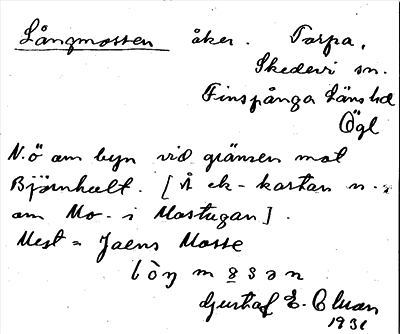 Långmossen åker. Torpa,
Skedevi sn.
Finspånga Läns hd
Ögl
N.ö om byn vid gränsen mot
Björnhult. [Å ek-kartan n.
om Mo- i Mostugan].
Mest = Jaens Mosse
Gustaf E.
1931